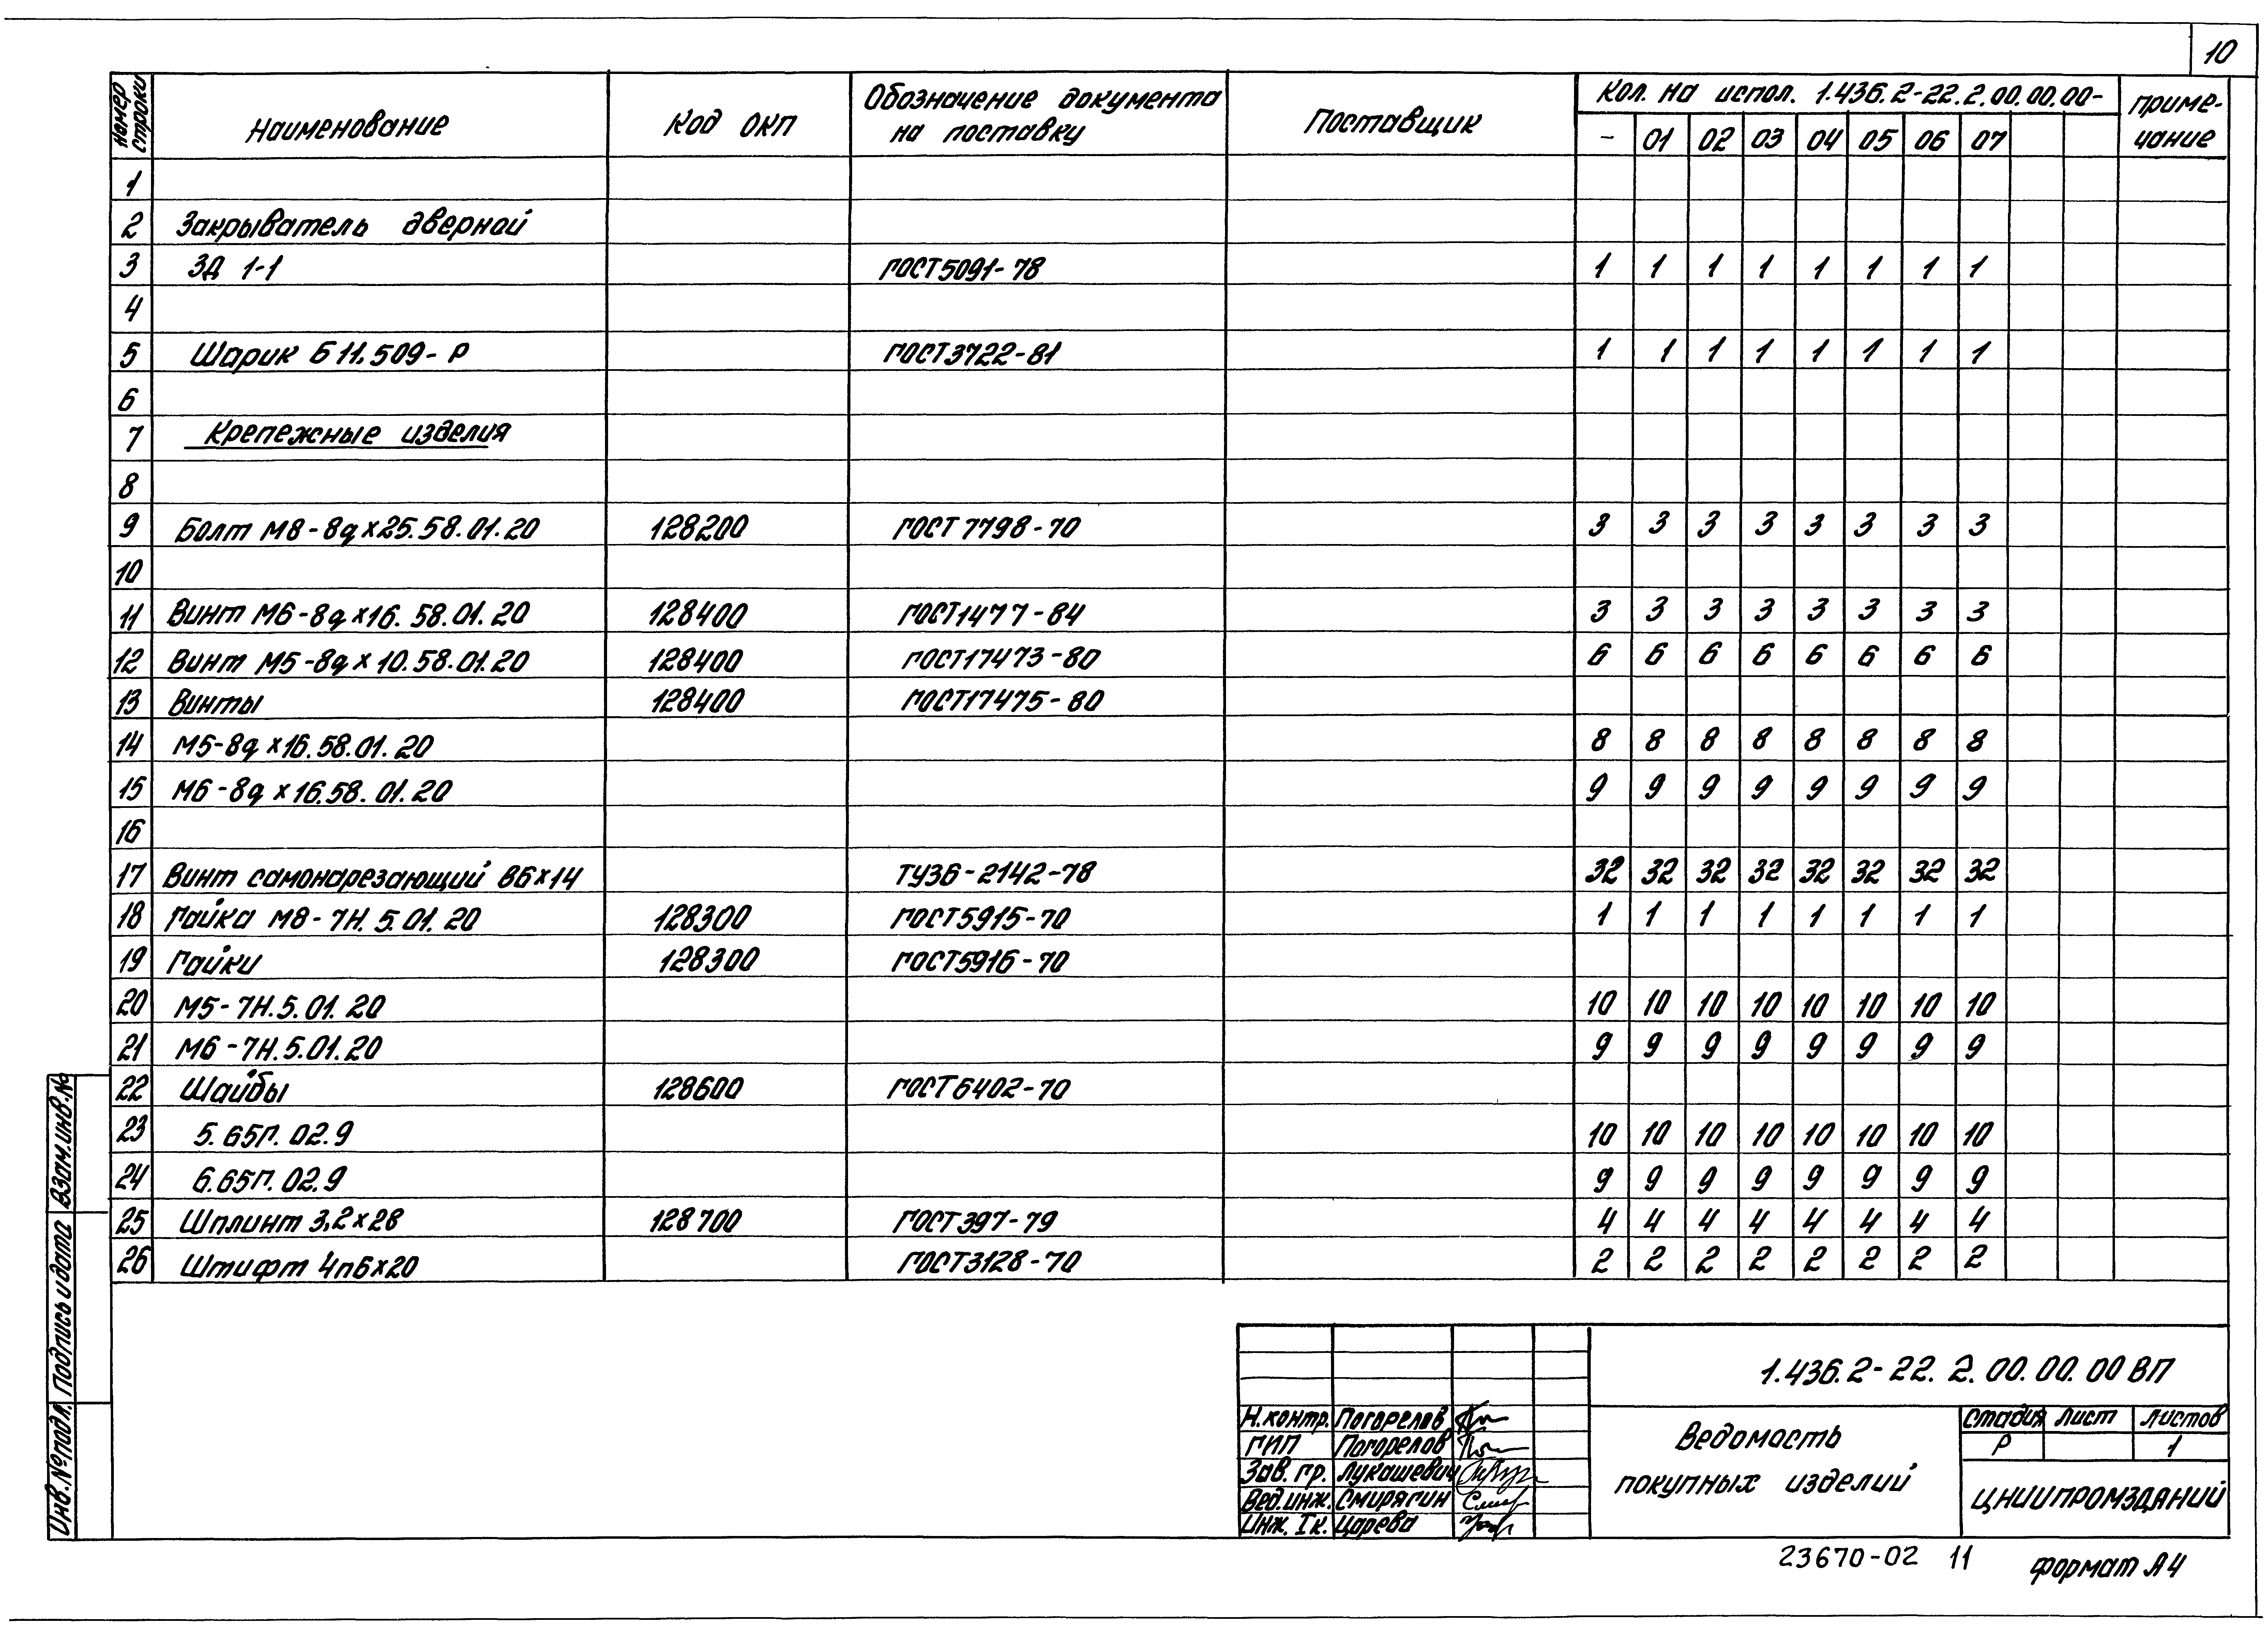 10
Номер строки | Наименование | Код ОКП | Обозначение документа на поставку | Поставщик | Кол. на испол. 1.436.2-22.2.00.00.00- | Приме-чание
- 01 02 03 04 05 06 07
1
2 Закрыватель дверной
3 ЗД 1-1 ГОСТ5091-78 1 1 1 1 1 1 1 1
4
5 Шарик Б 11.509-Р ГОСТ3722-81 1 1 1 1 1 1 1 1
6
7 Крепежные изделия
8
9 Болт М8-8g×25.58.01.20 128200 ГОСТ 7798-70 3 3 3 3 3 3 3 3
10
11 Винт М6-8g×16.58.01.20 128400 ГОСТ1477-84 3 3 3 3 3 3 3 3
12 Винт М5-8g×10.58.01.20 128400 ГОСТ17473-80 6 6 6 6 6 6 6 6
13 Винты 128400 ГОСТ17475-80
14 М5-8g×16.58.01.20 8 8 8 8 8 8 8 8
15 М6-8g×16.58.01.20 9 9 9 9 9 9 9 9
16
17 Винт самонарезающий В6×14 ТУ36-2142-78 32 32 32 32 32 32 32 32
18 Гайка М8-7Н.5.01.20 128300 ГОСТ5915-70 1 1 1 1 1 1 1 1
19 Гайки 128300 ГОСТ5916-70
20 М5-7Н.5.01.20 10 10 10 10 10 10 10 10
21 М6-7Н.5.01.20 9 9 9 9 9 9 9 9
22 Шайбы 128600 ГОСТ6402-70
23 5.65Г.02.9 10 10 10 10 10 10 10 10
24 6.65Г.02.9 9 9 9 9 9 9 9 9
25 Шплинт 3,2×28 128700 ГОСТ397-79 4 4 4 4 4 4 4 4
26 Штифт 4п6×20 ГОСТ3128-70 2 2 2 2 2 2 2 2
Взам.инв.№
Подпись и дата
Инв.№подл.
1.436.2-22.2.00.00.00 ВП
Н.контр. Погорелов
ГИП Погорелов
Зав. гр. Лукашевич
Вед.инж. Смирягин
Инж. Iк. Царева
Ведомость
покупных изделий
Стадия Лист Листов
Р 1
ЦНИИПРОМЗДАНИЙ
23670-02 11
формат А4